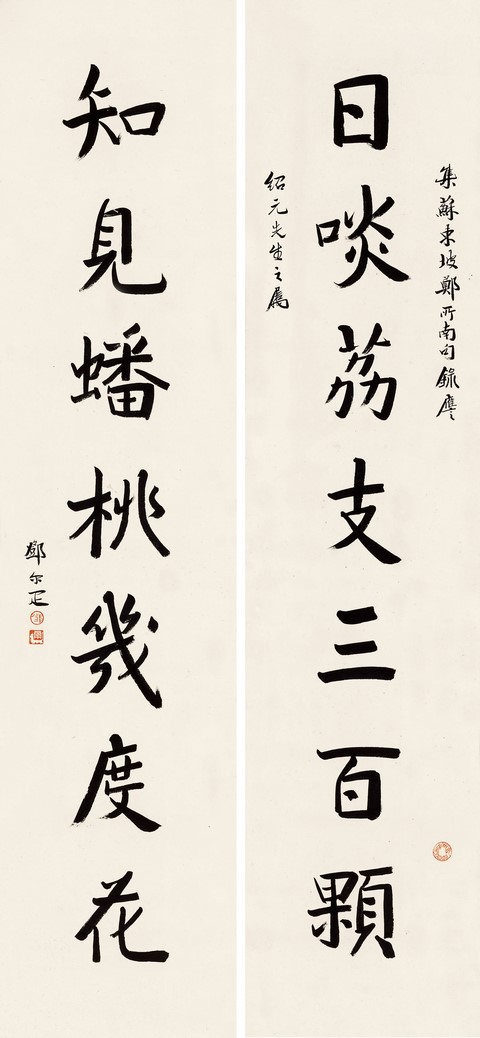 集蘇東坡鄭所南句錄應
日啖荔支三百顆
紹元先生之屬
知見蟠桃幾度花
鄧尔疋